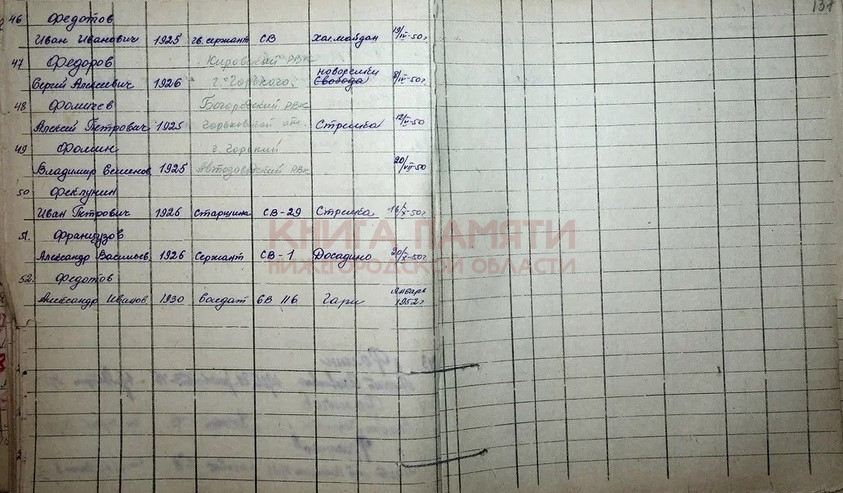 131
46 Федотов
Иван Иванович 1925 гв. сержант СВ Хагмайдан 19/IV-50г.
47 Федоров Кировский РВК новоселки
Сергей Алексеевич 1926 г. Горького. Свобода 8/IV-50г.
48 Фомичев Богородский РВК
Алексей Петрович 1925 Горьковской обл. Стрелка 12/V-50
49 Фомин г. Горький
Владимир Семенов 1925 Автозаводский РВК 20/VII-50
50 Феклунин
Иван Петрович 1926 Старшина СВ-29 Стрелка 16/X-50г.
КНИГА ПАМЯТИ
51. Французов
Александр Васильев. 1926 Сержант СВ-1 Досадино 20/X-50г.
НИЖЕГОРОДСКОЙ ОБЛАСТИ
52. Федотов январь
Александр Иванов. 1930 солдат БВ 116 Гари 1952г